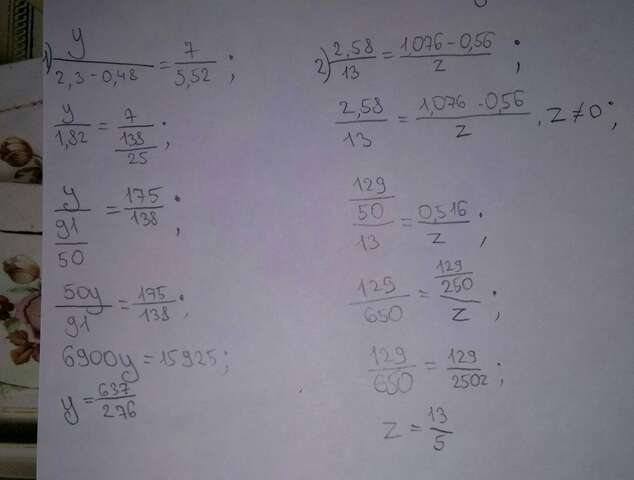 1) y/(2,3-0,48) = 7/5,52;
y/1,82 = 7/(138/25);
y/(91/50) = 175/138;
50y/91 = 175/138;
6900y = 15925;
y = 637/276
2) 2,58/13 = (1,076-0,56)/z;
2,58/13 = (1,076-0,56)/z, z≠0;
(129/50)/13 = 0,516/z;
129/650 = (129/250)/z;
129/650 = 129/250z;
z = 13/5